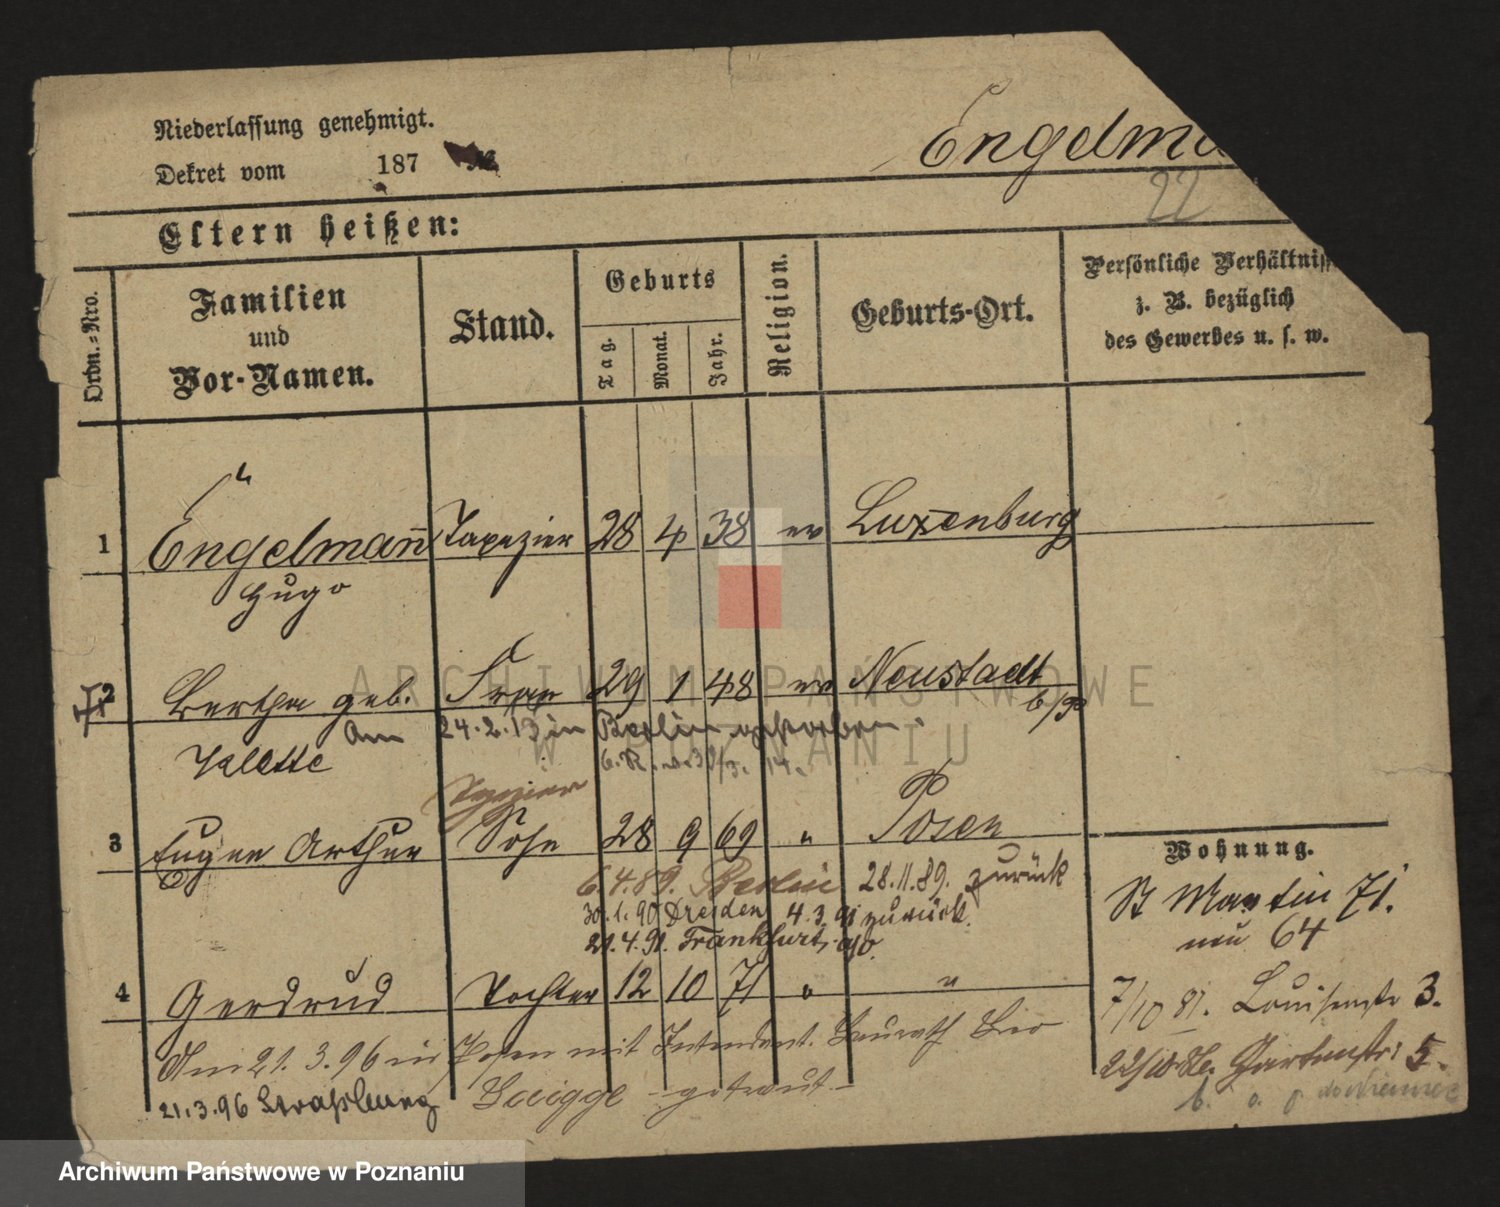 Niederlassung genehmigt.
Dekret vom 187
Engelma
22
Eltern heißen:
Ordn.-Nro.
Familien
und
Vor-Namen.
Stand.
Geburts
Tag.
Monat.
Jahr.
Religion.
Geburts-Ort.
Persönliche Verhältniss
z. B. bezüglich
des Gewerbes u. s. w.
1 Engelmann Tapezier 28 4 38 ev Luxenburg
Hugo
2 Bertha geb. Frau 29 1 48 ev Neustadt
b/P
am 24.2.13 in Berlin gestorben.
Tapezier
3 Eugen Arthur Sohn 28 9 69 " Posen
6.4.89. Berlin 28.11.89. zurück
30.1.90 Dresden 4.3.91 zurück.
21.4.91. Frankfurt a/O.
4 Gerdrud Tochter 12 10 71 " "
Am 21.3.96 in Posen mit Intendant. Baurath
getraut
21.3.96 Straßburg
Wohnung.
St Martin 71.
neu 64
7/10 81. Louisenstr 3.
Gartenstr: 5.
ARCHIWUM PAŃSTWOWE
W POZNANIU
Archiwum Państwowe w Poznaniu